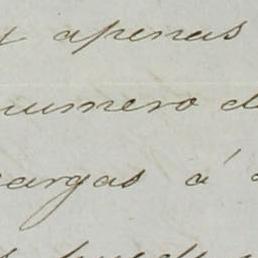 y apenas
numero d
cargas á